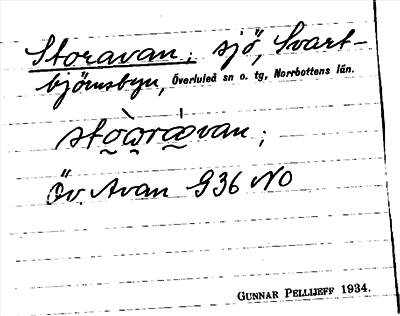 Storavan; sjö, Svart-
björnsbyn, Överluleå sn o. tg, Norrbottens län.
Öv. Avan 936 NO
GUNNAR PELLIJEFF 1934.